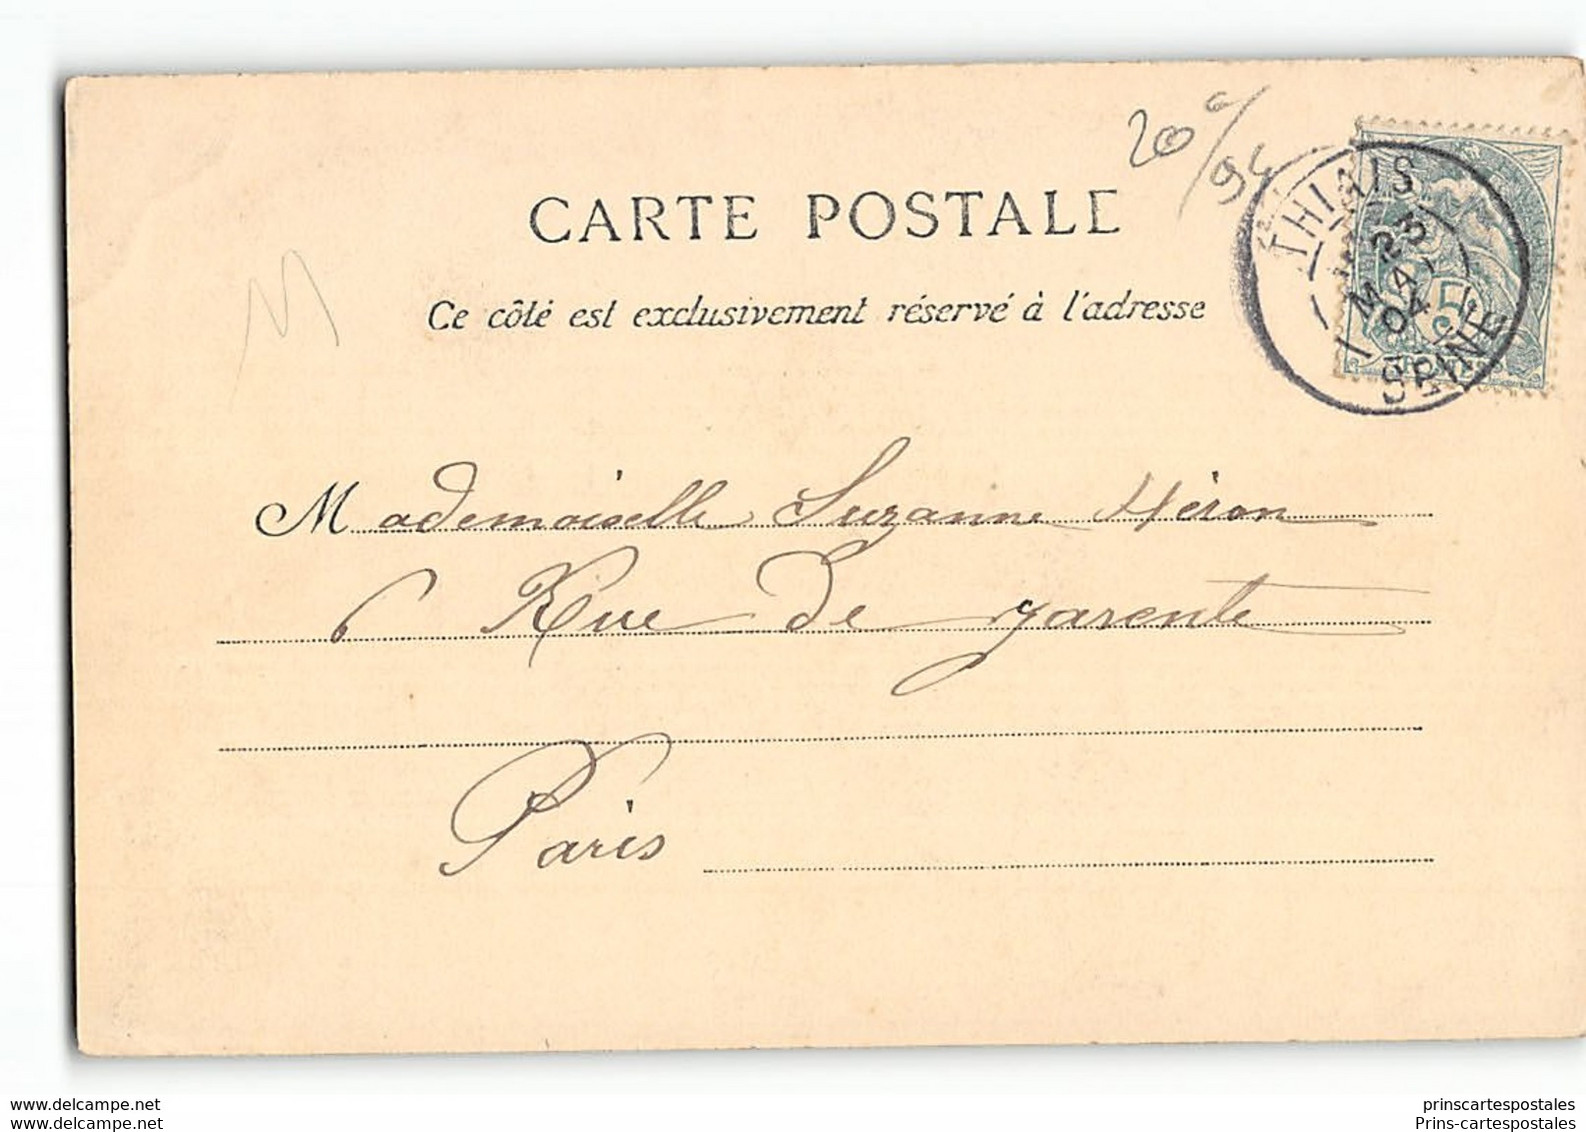 20 c/94
CARTE POSTALE
Ce côté est exclusivement réservé à l'adresse
THIAIS
23
MA
04
SEINE
5
M
Mademoiselle Suzanne Héron
6 Rue de garente
Paris
www.delcampe.net
www.delcampe.net
prinscartespostales
Prins-cartespostales